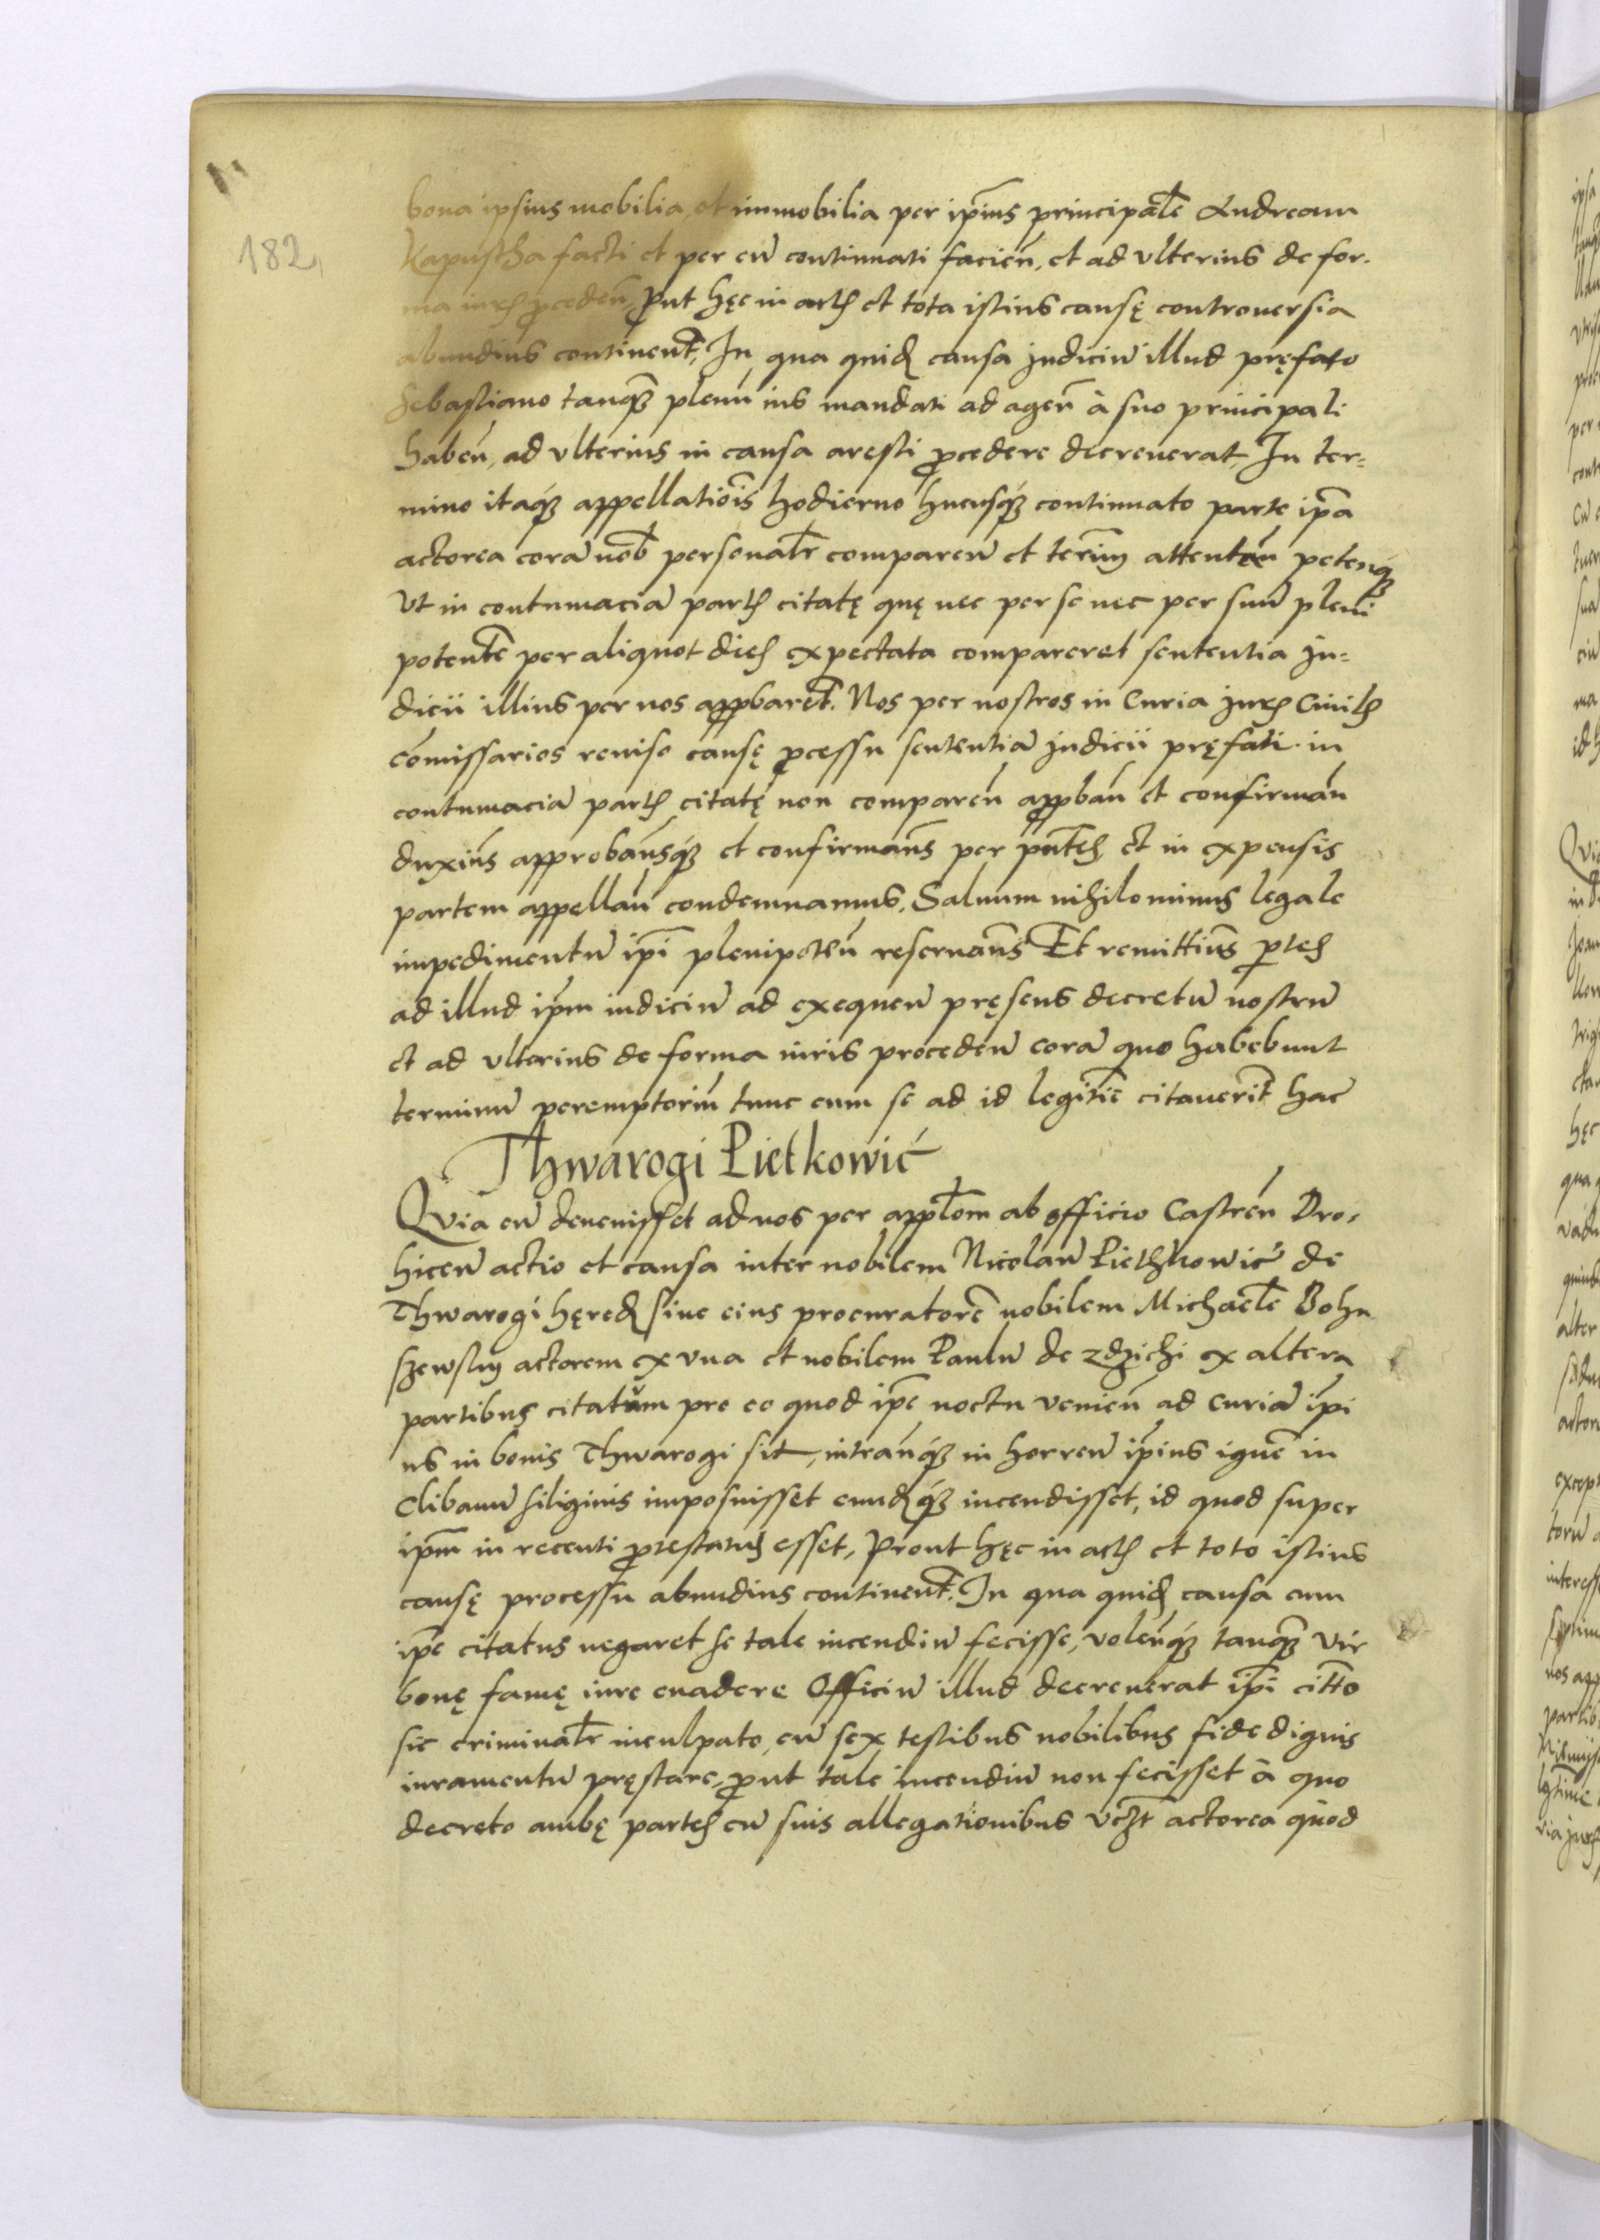 182
bona ipsius mobilia et immobilia per ip̄ius principalē Andream
Kapustha facti et per eū continuati facień, et ad vlterius de for-
ma iuris procedeń Put hęc in actis et tota istius causę controuersia
abundius continent̄, In qua quid causa judiciū illud pręfato
Sebastiano tanq̄ȝ plenū ius mandati ad ageń à suo principali
habeń, ad vlterius in causa aresti p̱cedere decreuerat In ter=
mino itaq́ȝ appellatiōis hodierno hucusq́ȝ continuato parte ip̄a
actorea corā nob̄ personalr̄ compareñ et termīn attentań petenq́ȝ
Vt in contumaciā partis citatę quę nec per se nec per suū pleni
potentē per aliquot dies expectata compareret sententia Ju=
dicii illius per nos app̱baret̄. Nos per nostros in Curia juris Ciuilis
cōmissarios reuiso causę p̱cessu sententiā judicii pręfati in
contumaciā partis citatę non compareń app̱bań et confirmań
duxim̄s approbam̄sq́ȝ et confirmam̄s per pn̄tes et in expensis
partem appellań condemnamus. Saluum nihilominus legale
impedimentū ip̄i plenipoteń reseruam̄s Et remittim̄s p̱tes
ad illud ip̄m iudiciū ad exequeñ pręsens decretū nostrū
et ad vlterius de forma iuris procedeñ corā quo habebunt
terminū peremptoriū tunc cum se ad id legitīe citauerīt hac
Thwarogi Pietkowić
QVia cū deuenisset ad nos per appl̄om ab officio Castreń Dro-
hiceñ actio et causa inter nobilem Nicolaū Piethkowić de
Thwarogi hęred siue eius procuratorē nobilem Michaelē Bohu
szewsky actorem ex vna et nobilem Paulū de Zdzichi ex altera
partibus citatum pro eo quod ip̄e noctu venień ad curiā ip̄i
us in bonis Thwarogi sit, intrańq́ȝ in horreū ip̄ius ignē in
Clibanū siliginis imposuisset eundq́ȝ incendisset, id quod super
ip̄m in recenti p̱testatus esset, Prout hęc in actis et toto istius
causę processu abundius continent̄. In qua quid causa cum
ip̄e citatus negaret se tale incendiū fecisse, voleńq́ȝ tanq̄ȝ vir
bonę famę iure euadere Officiū illud decreuerat ip̄i citt̄o
sic criminalr̄ inculpato, cū sex testibus nobilibus fide dignis
iuramentū pręstare, p̱ut tale incendiū non fecisset à quo
decreto ambę partes cū suis allegationibus vczt̄ actorea quod